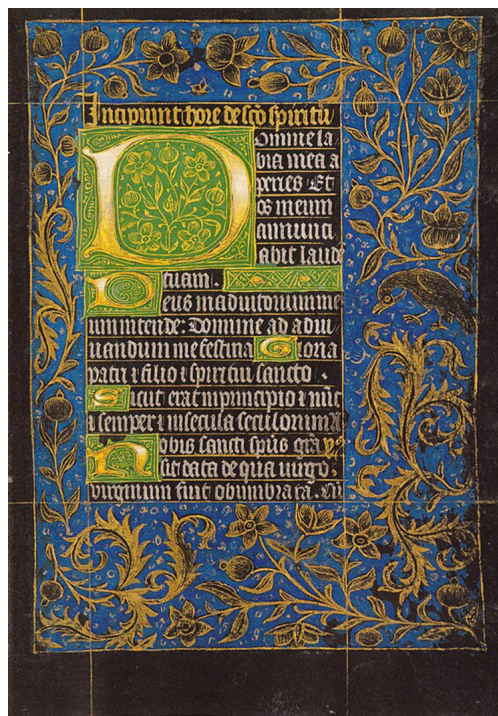 Incipiunt hore de sco spiritu
Domine la
bia mea a
peries Et
os meum
annunci
abit laude
tuam.
Deus in adiutorium me
um intende: Domine ad adiu
uandum me festina Gloria
patri ⁊ filio ⁊ spiritui sancto.
Sicut erat in principio ⁊ nūc
⁊ semper ⁊ in secula seculorum
Nobis sancti spūs grā
sit data de qua uirgo
virginum fuit obumbrata.